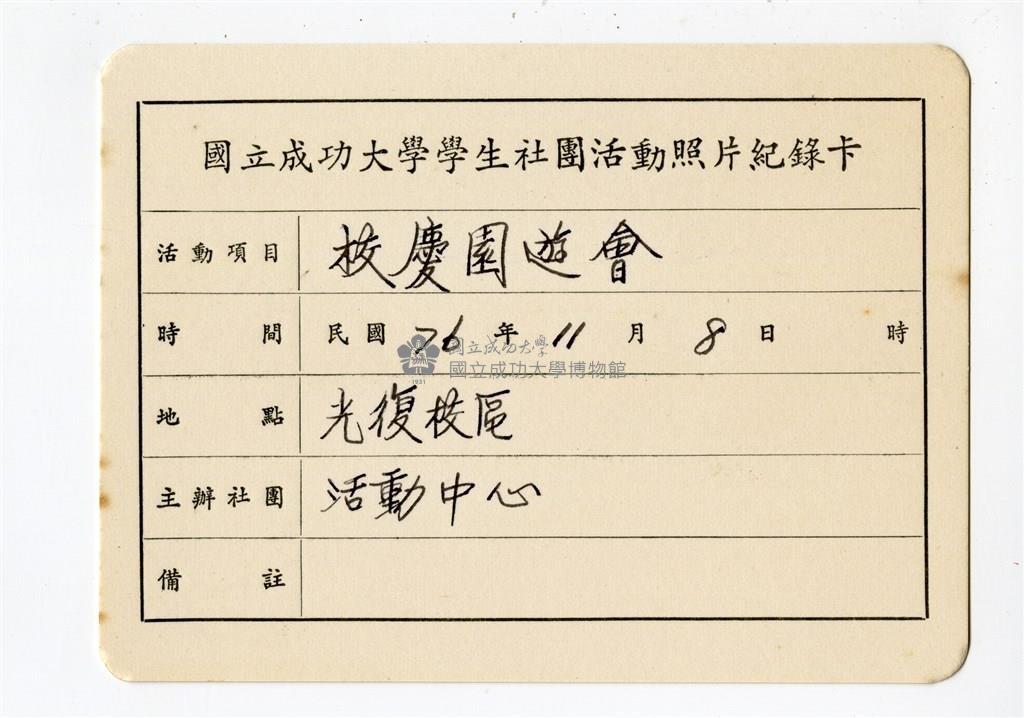 國立成功大學學生社團活動照片紀錄卡
活動項目 校慶園遊會
時間 民國 76 年 11 月 8 日 時
國立成功大學
國立成功大學博物館
1931
地點 光復校區
主辦社團 活動中心
備註